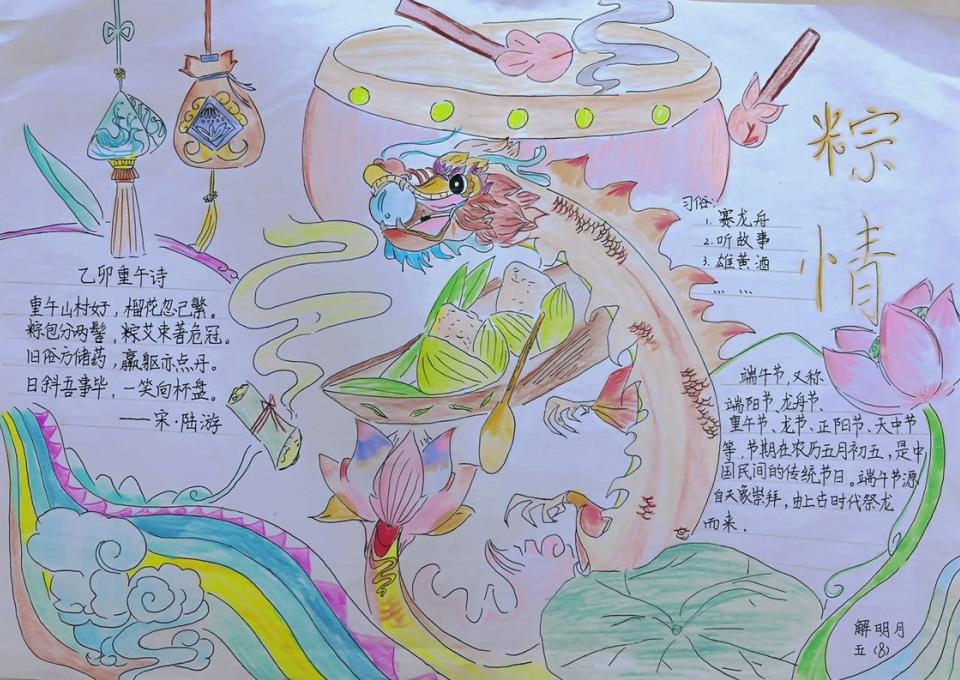 粽情
习俗:
1. 赛龙舟
2. 听故事
3. 雄黄酒
... ...
乙卯重午诗
重午山村好，榴花忽已繁。
粽包分两髻，粽艾束著危冠。
旧俗方储药，羸躯亦点丹。
日斜吾事毕，一笑向杯盘。
——宋·陆游
端午节，又称
端阳节、龙舟节、
重午节、龙节、正阳节、天中节
等，节期在农历五月初五，是中
国民间的传统节日。端午节源
自天象崇拜，由上古时代祭龙
而来.
解明月
五(8)